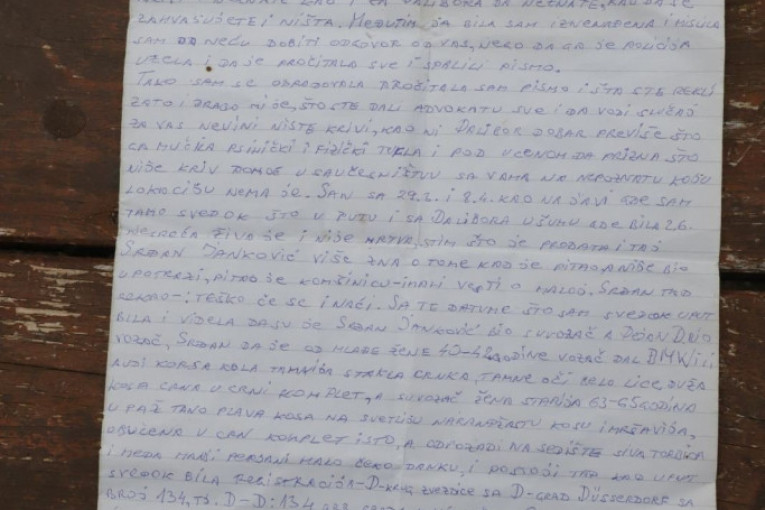 ZAHVALJUJETE I NIŠTA. MEĐUTIM JA BILA SAM IZNENAĐENA I MISLILA
SAM DA NEĆU DOBITI ODGOVOR OD VAS, NEGO DA GA JE POLICIJA
UZELA I DA JE PROČITALA SVE I SPALILI PISMO.
TAKO SAM SE OBRADOVALA PROČITALA SAM PISMO I ŠTA STE REKLI
ZATO I DRAGO MI JE, ŠTO STE DALI ADVOKATU SVE I DA VODI SLUČAJ
ZA VAS NEVINI NISTE KRIVI, KAO NI DALIBOR DOBAR PREVIŠE ŠTO
GA MUČKA PSIHIČKI I FIZIČKI TUKLA I POD UCENOM DA PRIZNA ŠTO
NIJE KRIV POMOĆ U SAUČESNIŠTVU SA VAMA NA NEPOZNATU KOJU
LOKACIJU NEMA JE. SAN SA 29.3. I 8.4. KAO NA JAVI GDE SAM
TAMO SVEDOK ŠTO U PUTU I SA DALIBORA U ŠUMU GDE BILA 26.
MESECA ŽIVA JE I NIJE MRTVA, STIM ŠTO JE PRODATA I TAJ
SRĐAN JANKOVIĆ VIŠE ZNA O TOME KAD JE PITAO, A NIJE BIO
U POTRAZI, PITAO JE KOMŠINICU-IMALI VESTI O MALOJ, SRĐAN TAD
REKAO-: TEŠKO ĆE SE I NAĆI. SA TE DATUME ŠTO SAM SVEDOK UPUT
BILA I VIDELA DA SU JE SRĐAN JANKOVIĆ BIO SUVOZAČ A DEJAN
VOZAČ, SRĐAN DA JE OD MLAĐE ŽENE 40-42 GODINE VOZAČ DAL BMW ili
AUDI KOLA TAMNIJA STAKLA CRNKA, TAMNE OČI BELO LICE, DUŽA
KOSA CRNA U CRNI KOMPLET, A SUVOZAČ ŽENA STARIJA 63-65 GODINA
U PAŽ TANO PLAVA KOSA NA SVETLIJU NARANDŽASTU KOSU I MRŠAVIJA,
OBUČENA U CRN KOMPLET ISTO, A ODPOZADI NA SEDIŠTE SIVA TORBICA
I MEDA MALI MALO ĆEBO DANKU, I POSTOJI TAD KAO UPUT
SVEDOK BILA REGISTRACIJA-D-KRUG ZVEZDICE SA D-GRAD DÜSSERDORF SA
BROJ 134, TJ. D-D: 134